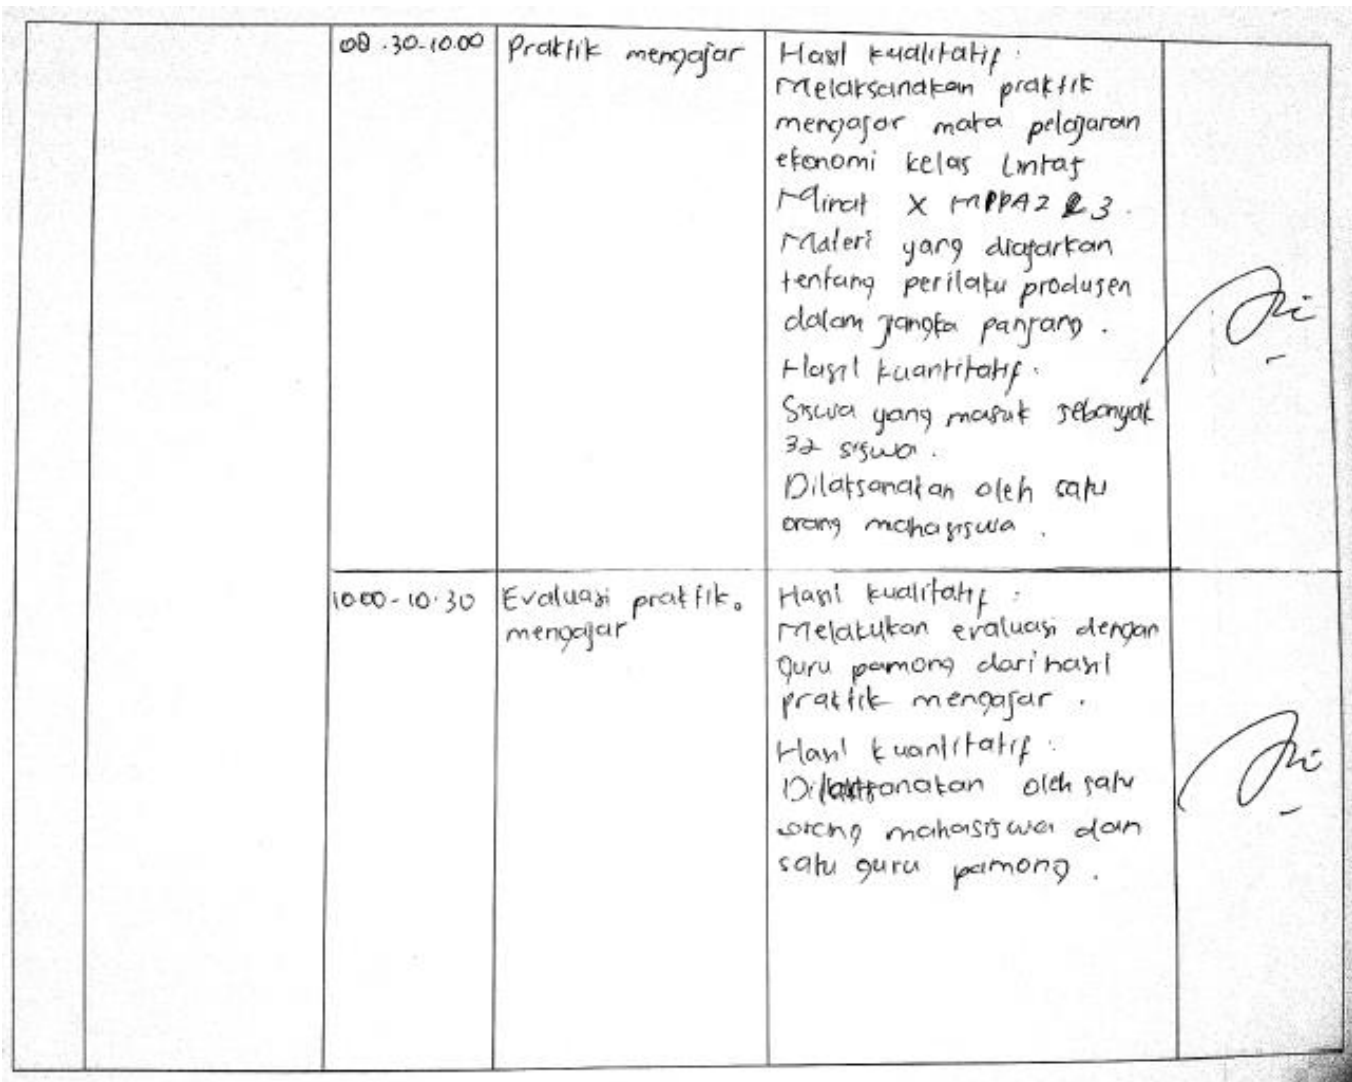 08.30-10.00
Praktik mengajar
Hasil kualitatif :
Melaksanakan praktik
mengajar mata pelajaran
ekonomi kelas Lintas
Minat X MPPA2 & 3.
Materi yang diajarkan
tentang perilaku produsen
dalam jangka panjang.
Hasil kuantitatif.
Siswa yang masuk sebanyak
32 siswa.
Dilaksanakan oleh satu
orang mahasiswa.
10.00-10.30
Evaluasi praktik.
mengajar
Hasil kualitatif :
Melakukan evaluasi dengan
guru pamong dari hasil
praktik mengajar.
Hasil kuantitatif :
Dilaksanakan oleh satu
orang mahasiswa dan
satu guru pamong.